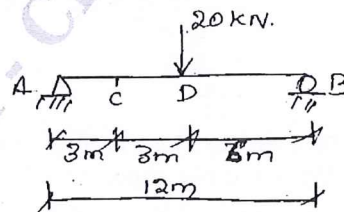 20kN.
A C D B
3m 3m 6m
12m